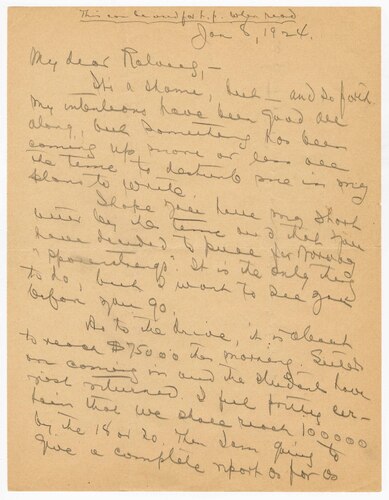 This can be used for t.p. when read
Jan 8, 1924.
My dear Rolvaag,—
It's a shame, but — and so forth
My intentions have been good all
along, but something has been
coming up more or less all
the time to disturb me in my
plans to write.
I hope you have my short
letter by the time and that you
have decided to for Norway
It is the only thing
to do, but I want to see you
before you go.
As to the drive, it is about
to reach $75000 this morning.
are coming in and the students have
just returned. I feel pretty cer-
tain that we shall reach 100000
by the 18 or 20. Then I am going to
give a complete report as far as